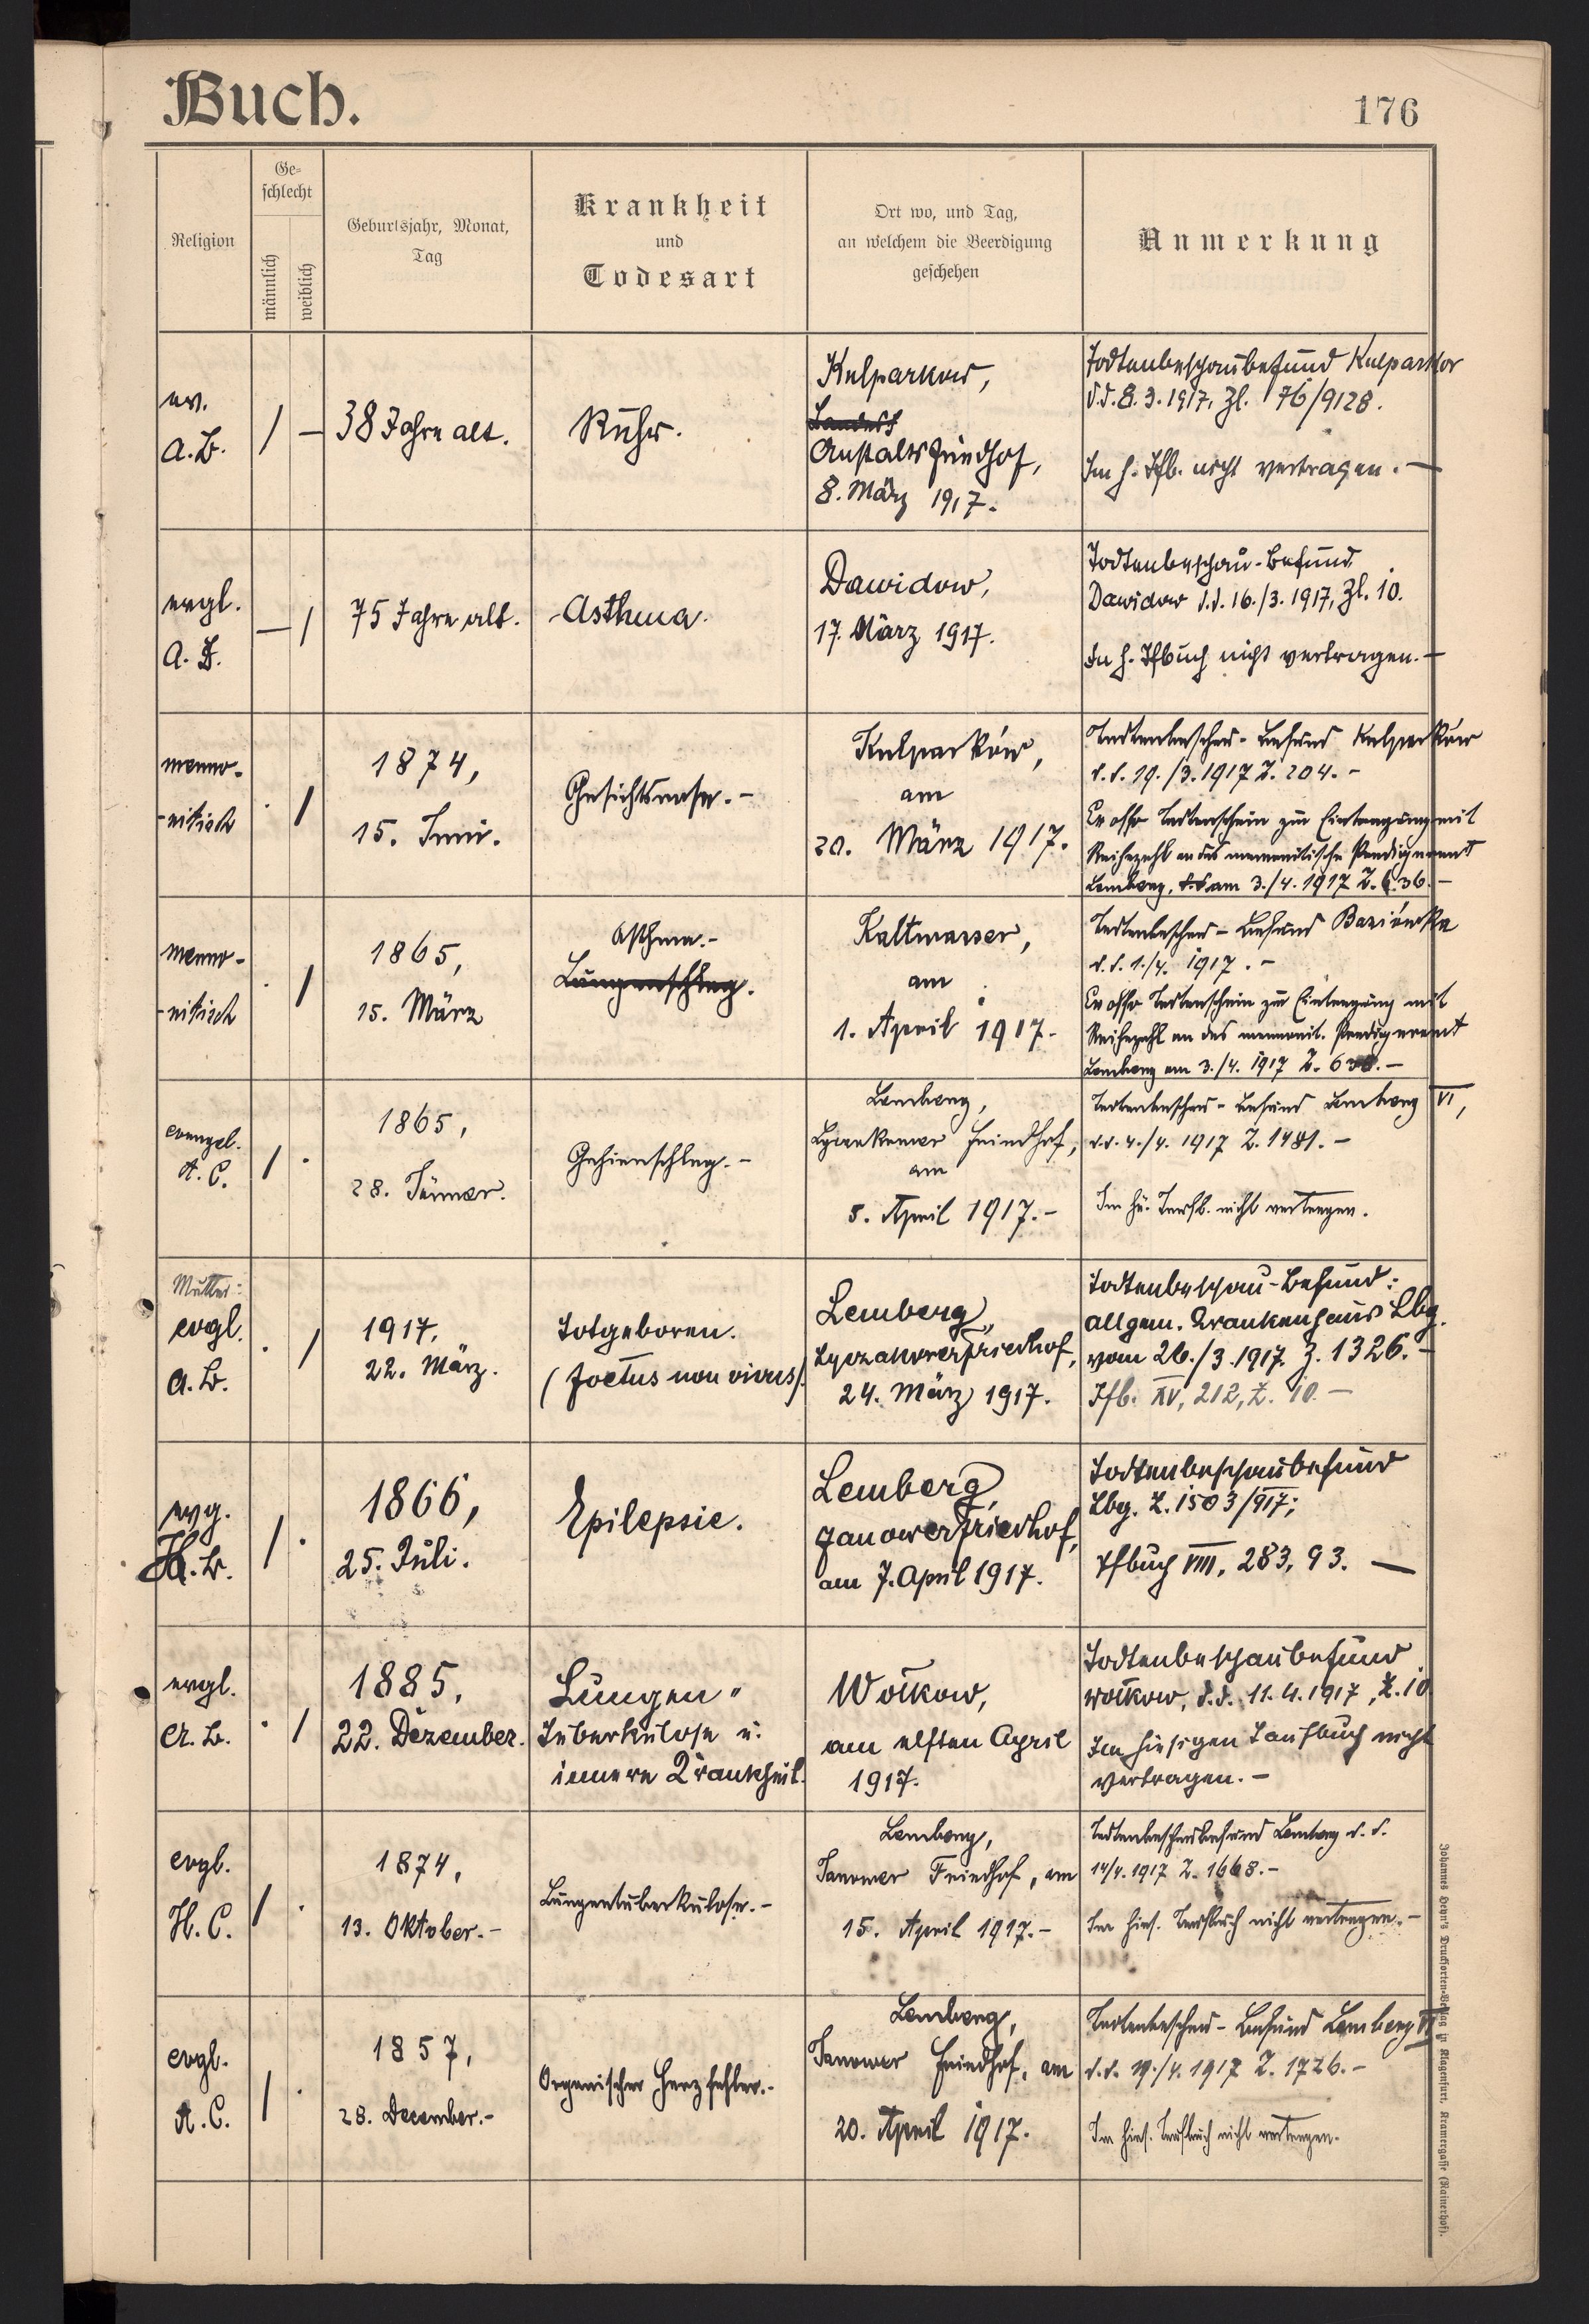 Buch.
176
Religion
Ge-
schlecht
männlich
weiblich
Geburtsjahr, Monat,
Tag
Krankheit
und
Todesart
Ort wo, und Tag,
an welchem die Beerdigung
geschehen
Anmerkung
ev.
A.B.
/ —
38 Jahre alt.
Ruhr.
Kulparkow,
Landes
Anstaltsfriedhof,
8. März 1917.
Todtenbeschaubefund Kulparkow
d.d. 8.3.1917, Zl. 176/9128.
Im h. Tfb. nicht vertragen. —
evgl.
A. B.
— /
75 Jahre alt.
Asthma.
Dawidow,
17. März 1917.
Todtenbeschau-Befund
Dawidow d.d. 16./3. 1917, Zl. 10.
In h. Tfbuch nicht vertragen. —
menno-
-nitisch
. /
1874,
15. Juni.
Gesichtsrose. -
Kulparków,
am
20. März 1917.
Todtenbeschau-Befund Kulparków
d.d. 19./3. 1917 Z. 204. -
Ex offo Totenschein zur Eintragung mit
Reihezahl an das mennonitische Predigeramt
Lemberg, am 3./4. 1917 Z. 636. -
menno-
-nitisch
. /
1865,
15. März
Asthma. -
Lungenschlag.
Kaltwasser,
am
1. April 1917.
Todtenbeschau-Befund Baziówka
d.d. 1./4. 1917. -
Ex offo Totenschein zur Eintragung mit
Reihezahl an das mennonit. Predigeramt
Lemberg am 3./4. 1917 Z.
evangel.
A. C.
/ .
1865,
28. Jänner.
Gehirnschlag. -
Lemberg,
Lyczakower Friedhof,
am
5. April 1917. -
Todtenbeschau-Befund Lemberg VI,
d.d. 4./4. 1917 Z. 1481. -
Im hs. Taufb. nicht vertragen.
Mutter:
evgl.
A.B.
. /
1917,
22. März.
Totgeboren.
(foetus non vivus).
Lemberg,
Lyczakowerfriedhof,
24. März 1917.
Todtenbeschau-Befund:
allgem. Krankenhaus Lbg.
vom 26./3. 1917. Z. 1326. -
Tfb. XV, 212, Z. 10. —
evg.
H.B.
/ .
1866,
25. Juli.
Epilepsie.
Lemberg,
Janowerfriedhof,
am 7. April 1917.
Todtenbeschaubefund
Lbg. Z. 1503/917;
Tfbuch VIII, 283, 93. —
evgl.
A.B.
. /
1885,
22. Dezember.
Lungen-
Tuberkulose u.
innere Krankheit.
Wołkow,
am elften April
1917.
Todtenbeschaubefund
Wołkow, d.d. 11.4.1917, Z. 10
Im hiesigen Taufbuch nicht
vertragen. -
evgl.
H. C.
/ .
1874,
13. Oktober. -
Lungentuberkulose. -
Lemberg,
Janower Friedhof, am
15. April 1917. -
Todtenbeschaubefund Lemberg d.d.
14/4. 1917 Z. 1668. -
Im hies. Taufbuch nicht vertragen. -
evgl.
A. C.
/ .
1857,
28. December. -
Organischer Herzfehler. -
Lemberg,
Janower Friedhof, am
20. April 1917.
Todtenbeschau-Befund Lemberg VI
d.d. 19./4. 1917 Z. 1726. -
Im hies. Taufbuch nicht vertragen.
Johannes Heyn's Drucksorten-Verlag in Klagenfurt, Kramergasse (Rainerhof).